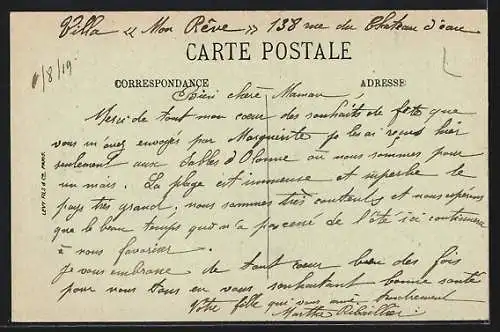 Villa « Mon Rêve » 138 rue du Chateau d'eau
CARTE POSTALE
1/8/19
CORRESPONDANCE
ADRESSE
Bien chère Maman,
Merci de tout mon cœur des souhaits de fête que
vous m'avez envoyés par Marguerite je les ai reçus hier
seulement aux Sables d'Olonne où nous sommes pour
un mois. La plage est immense et superbe le
pays très grand, nous sommes très contents et nous espérons
que le beau temps qui n'a pas cessé de l'été ici continuera
à nous favoriser.
Je vous embrasse de tout cœur bien des fois
pour nous tous en vous souhaitant bonne santé
Votre fille qui vous aime tendrement
Marthe
LEVY FILS & Cie, PARIS